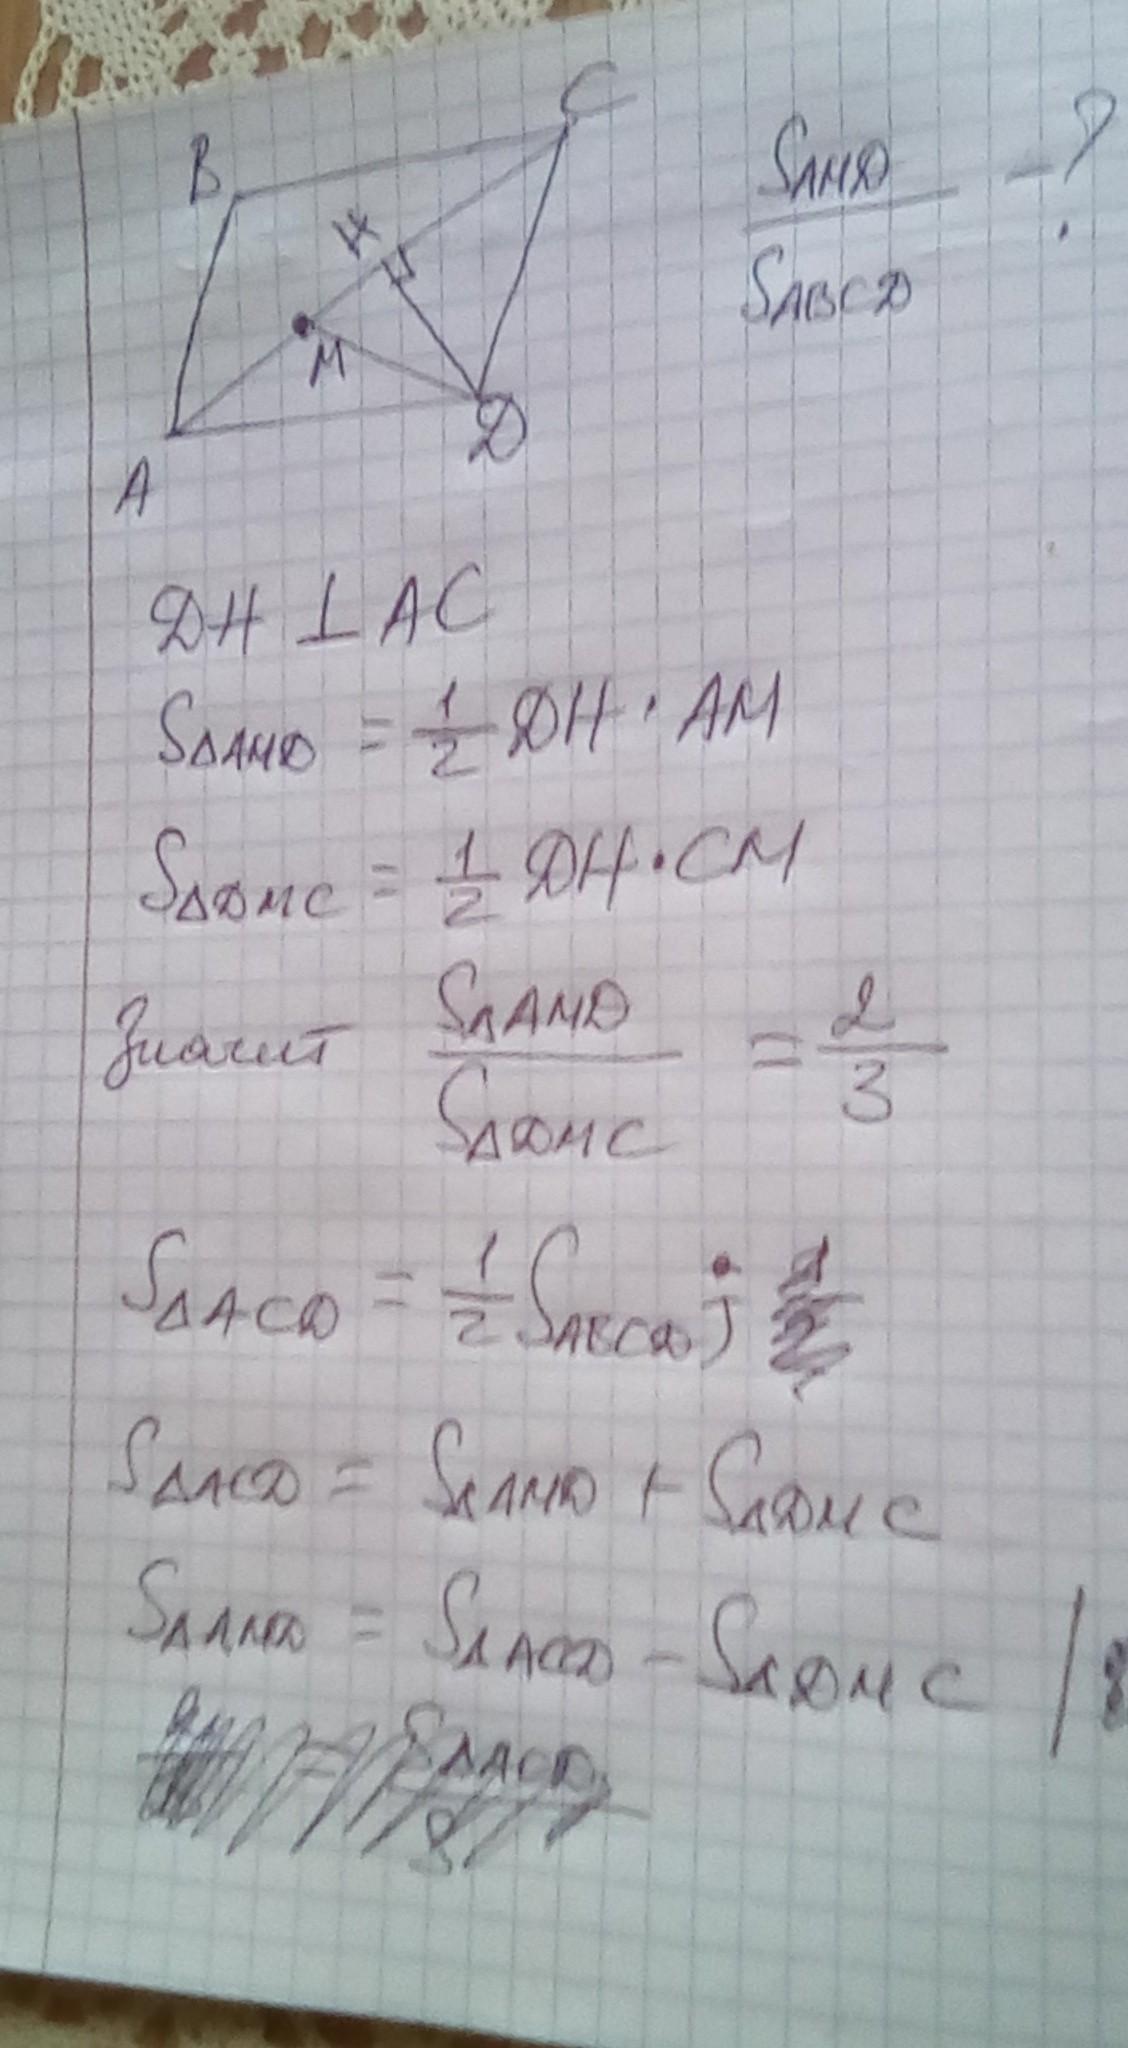 B
C
H
M
D
A
SAMD / SABCD - ?
DH ⊥ AC
S△AMD = 1/2 DH · AM
S△DMC = 1/2 DH · CM
Значит S△AMD / S△DMC = 2/3
S△ACD = 1/2 SABCD;
S△ACD = S△AMD + S△DMC
S△AMD = S△ACD - S△DMC |